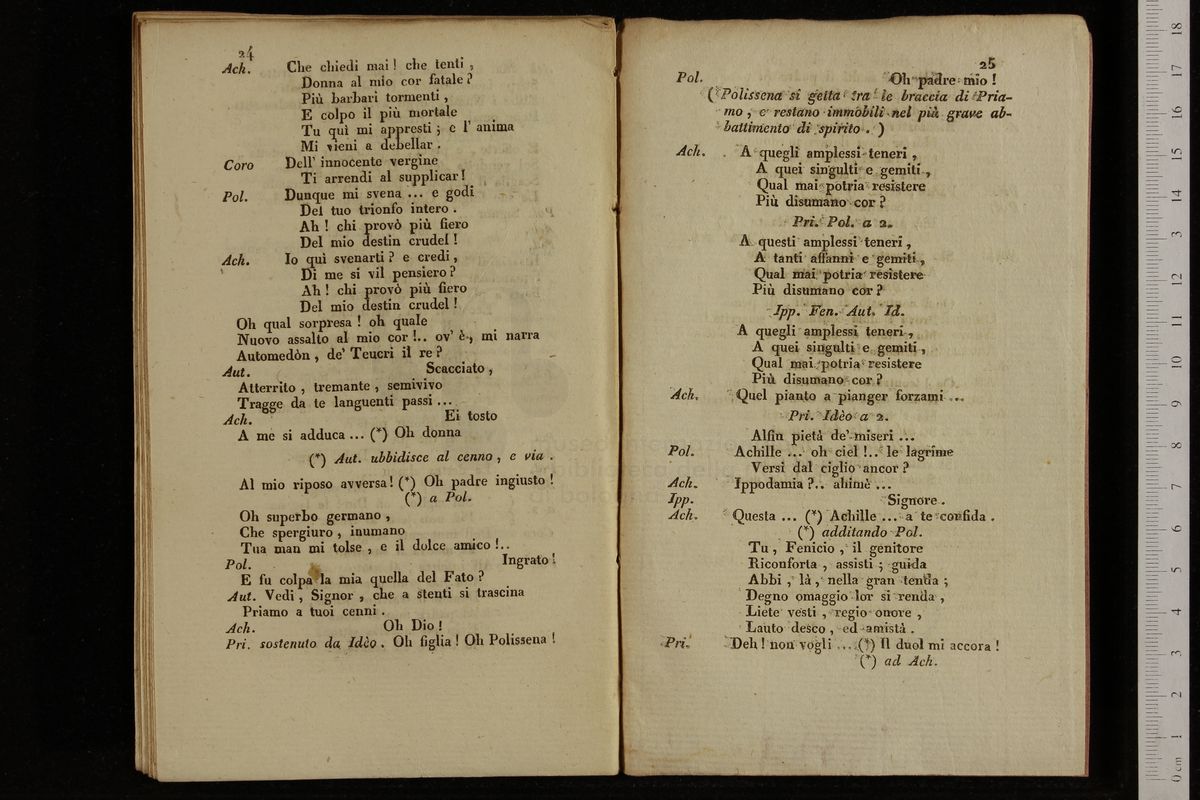 24
Ach. Che chiedi mai! che tenti,
Donna al mio cor fatale?
Più barbari tormenti,
E colpo il più mortale
Tu quì mi appresti; e l' anima
Mi vieni a debellar.
Coro Dell' innocente vergine
Ti arrendi al supplicar!
Pol. Dunque mi svena ... e godi
Del tuo trionfo intero.
Ah! chi provò più fiero
Del mio destin crudel!
Ach. Io quì svenarti? e credi,
Di me si vil pensiero?
Ah! chi provò più fiero
Del mio destin crudel!
Oh qual sorpresa! oh quale
Nuovo assalto al mio cor!.. ov' è, mi narra
Automedòn, de' Teucri il re?
Aut. Scacciato,
Atterrito, tremante, semivivo
Tragge da te languenti passi ...
Ach. Ei tosto
A me si adduca ... (*) Oh donna
(*) Aut. ubbidisce al cenno, e via.
Al mio riposo avversa! (*) Oh padre ingiusto!
(*) a Pol.
Oh superbo germano,
Che spergiuro, inumano
Tua man mi tolse, e il dolce amico!..
Pol. Ingrato!
E fu colpa la mia quella del Fato?
Aut. Vedi, Signor, che a stenti si trascina
Priamo a tuoi cenni.
Ach. Oh Dio!
Pri. sostenuto da Idèo. Oh figlia! Oh Polissena!
25
Pol. Oh padre mio!
(Polissena si getta tra le braccia di Pria-
mo, e restano immobili nel più grave ab-
battimento di spirito.)
Ach. A quegli amplessi teneri,
A quei singulti e gemiti,
Qual mai potria resistere
Più disumano cor?
Pri. Pol. a 2.
A questi amplessi teneri,
A tanti affanni e gemiti,
Qual mai potria resistere
Più disumano cor?
Ipp. Fen. Aut. Id.
A quegli amplessi teneri,
A quei singulti e gemiti,
Qual mai potria resistere
Più disumano cor?
Ach. Quel pianto a pianger forzami ...
Pri. Idèo a 2.
Alfin pietà de' miseri ...
Pol. Achille ... oh ciel!.. le lagrime
Versi dal ciglio ancor?
Ach. Ippodamia?.. ahimè ...
Ipp. Signore.
Ach. Questa ... (*) Achille ... a te confida.
(*) additando Pol.
Tu, Fenicio, il genitore
Riconforta, assisti; guida
Abbi, là, nella gran tenda;
Degno omaggio lor si renda,
Liete vesti, regio onore,
Lauto desco, ed amistà.
Pri. Deh! non vogli ... (*) Il duol mi accora!
(*) ad Ach.